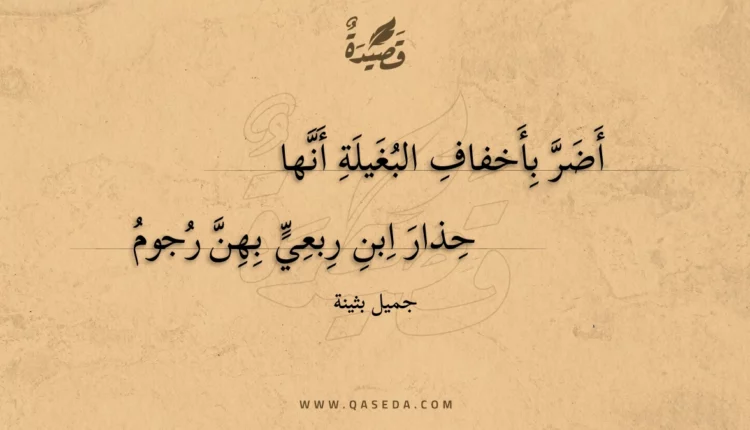 قَصِيْدَةٌ
أَضَرَّ بِأَخفافِ البُغَيلَةِ أَنَّها
حِذارَ اِبنِ رِبعِيٍّ بِهِنَّ رُجومُ
جميل بثينة
WWW.QASEDA.COM